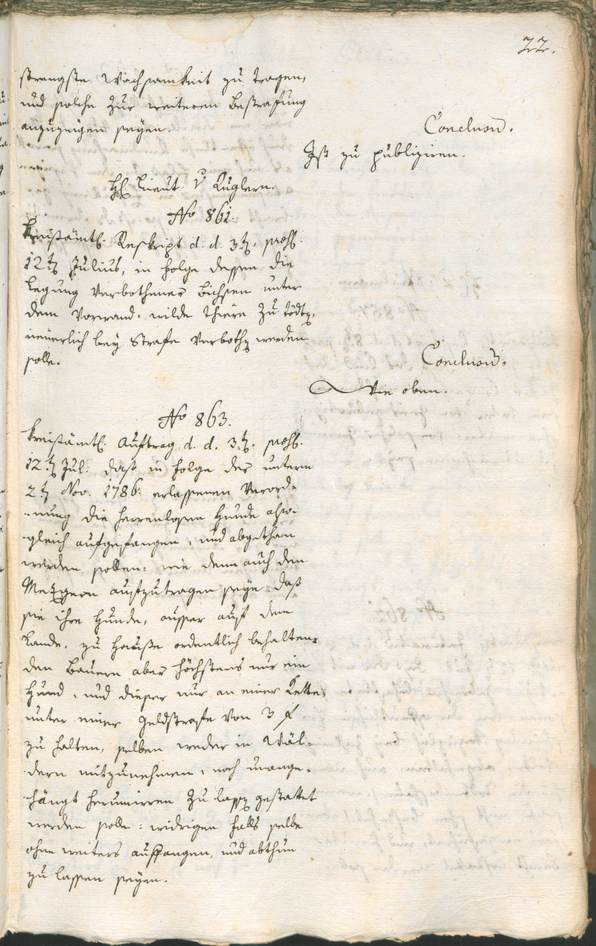 22.
strengste Wachsamkeit zu tragen,
und solche zur weiteren Bestrafung
anzuzeigen seyen.
Conclusum.
Ist zu publiziren.
H. Lieut. v. Kuglern.
No 861.
Kreisämtl. Reskript d. d. 3t. præs.
12t. Julius, in Folge dessen die
Legung verbothener Bichsen unter
dem Vorwand, wilde Thiere zu tödten,
neuerlich bey Strafe verbothen werden
solle.
Conclusum.
Wie oben.
No 863.
Kreisämtl. Auftrag d. d. 3t. præs.
12t. Jul. daß in Folge der unterm
2t. Nov. 1786 erlassenen Verord-
nung die herrenlosen Hunde also-
gleich aufgefangen, und abgethan
werden sollen: wie denn auch den
Metzgern aufzutragen seye, daß
sie ihre Hunde, ausser auf dem
Lande, zu Hause ordentlich behalten,
den Bauern aber höchstens nur ein
Hund, und dieser nur an einer Kette,
unter einer Geldstrafe von 3 f
zu halten, selben weder in Wäl-
dern mitzunehmen, noch unange-
hängt herumirren zu lassen gestattet
werden solle: widrigen Falls selbe
ohne weiters auffangen, und abthun
zu lassen seyen.